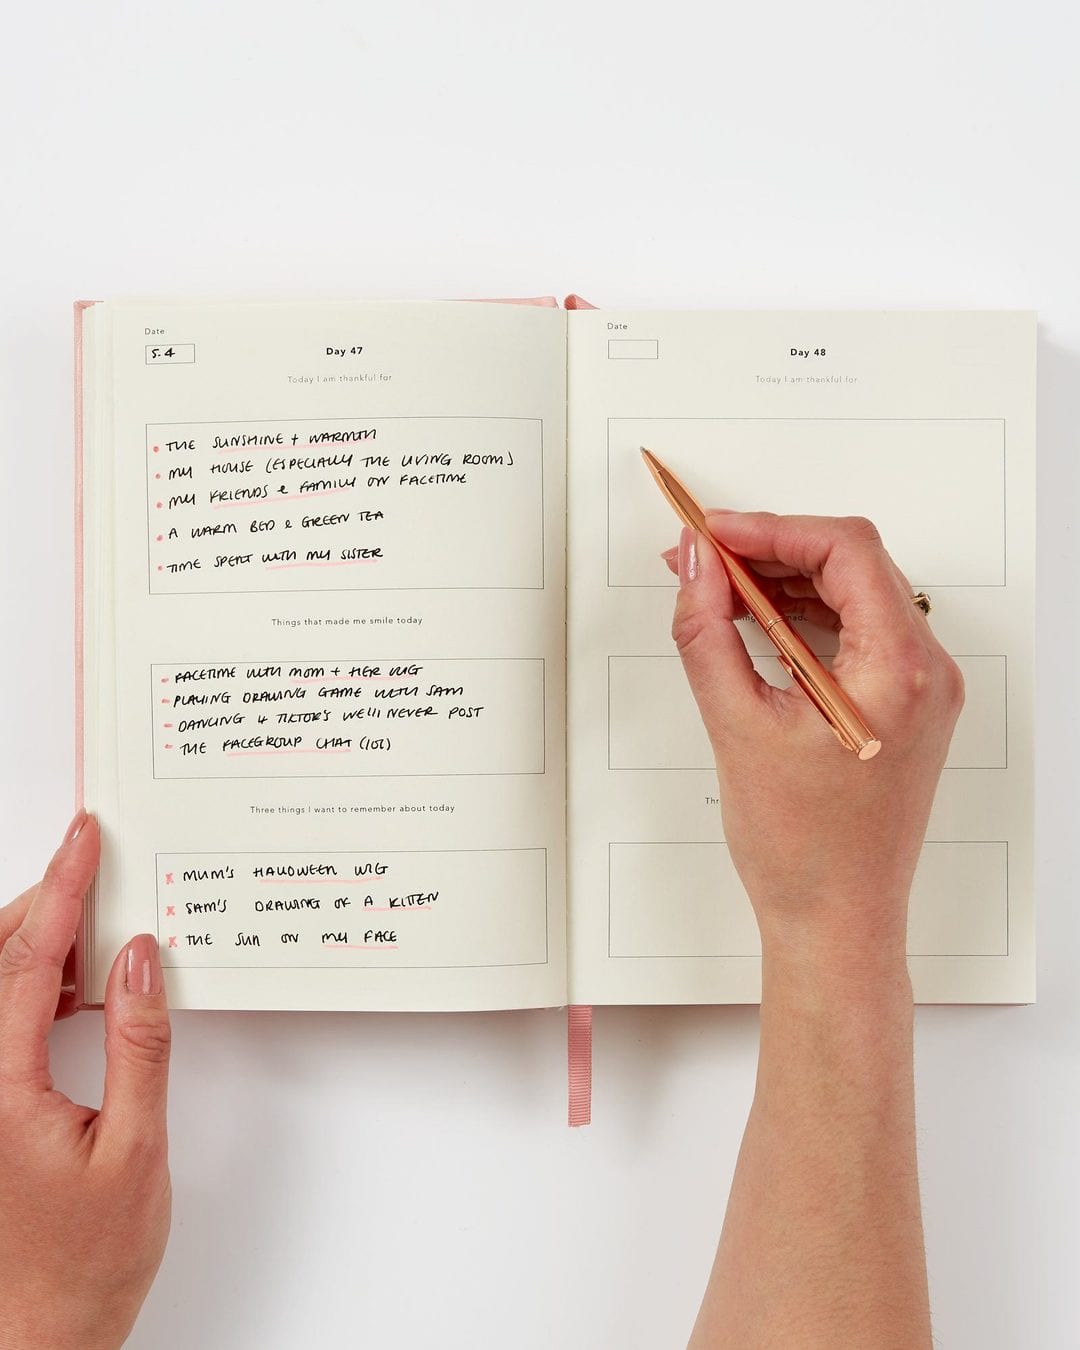 Date
5.4
Day 47
Today I am thankful for
• THE SUNSHINE + WARMTH
• MY HOUSE (ESPECIALLY THE LIVING ROOM)
• MY FRIENDS & FAMILY ON FACETIME
• A WARM BED & GREEN TEA
• TIME SPENT WITH MY SISTER
Things that made me smile today
- FACETIME WITH MOM + HER WIG
- PLAYING DRAWING GAME WITH SAM
- DANCING 4 TIKTOK'S WE'll NEVER POST
- THE FACEGROUP CHAT (lol)
Three things I want to remember about today
x MUM'S HALLOWEEN WIG
x SAM'S DRAWING OF A KITTEN
x THE SUN ON MY FACE
Date
Day 48
Today I am thankful for